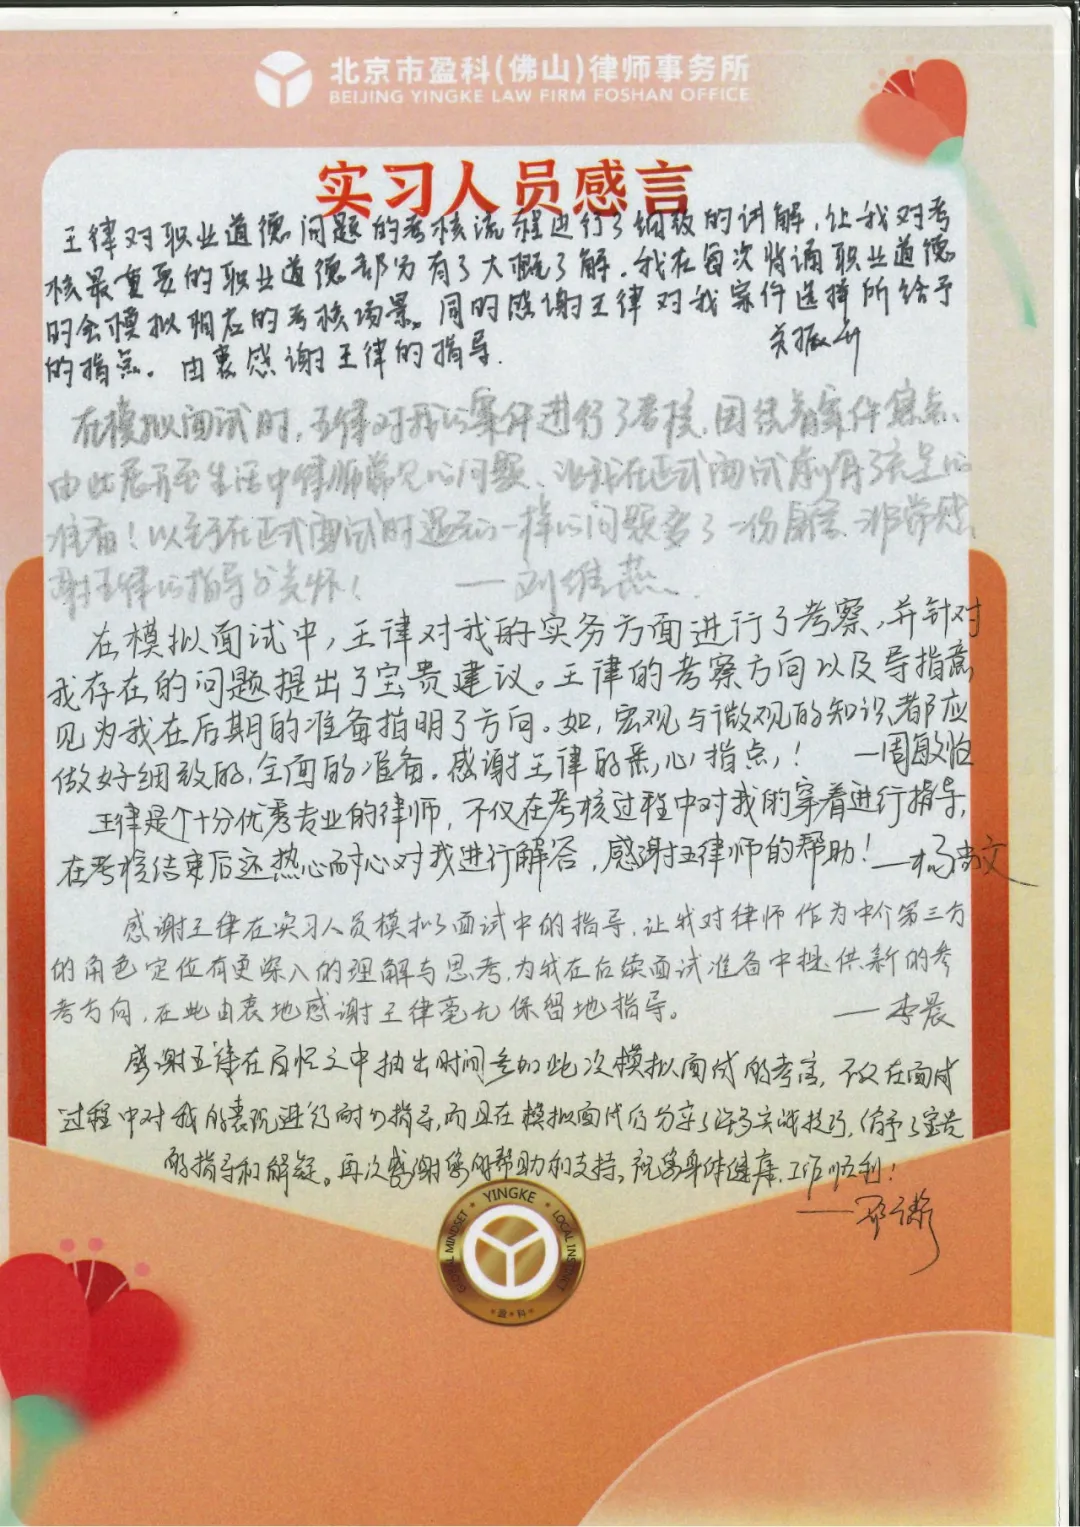 北京市盈科(佛山)律师事务所
BEIJING YINGKE LAW FIRM FOSHAN OFFICE
实习人员感言
王律对职业道德问题的考核流程进行了细致的讲解，让我对考
核最重要的职业道德部分有了大概了解。我在每次背诵职业道德
时会模拟相应的考核场景。同时感谢王律对我案件选择所给予
的指点。由衷感谢王律的指导.
关振
在模拟面试时，王律对我的案件进行了考核，围绕着案件焦点、
由此展开至生活中律师常见的问题、让我在正式面试前有了充足的
准备！以至于在正式面试时遇到一样的问题多了一份 非常感
谢王律的指导与关怀！ ——刘维燕.
在模拟面试中，王律对我的实务方面进行了考察，并针对
我存在的问题提出了宝贵建议。王律的考察方向以及导指意
见为我在后期的准备指明了方向。如，宏观与微观的知识，都应
做好细致的，全面的准备。感谢王律的悉心指点！ —周敏怡
王律是个十分优秀专业的律师，不仅在考核过程中对我的穿着进行指导，
在考核结束后还热心耐心对我进行解答，感谢王律师的帮助！—杨尚文
感谢王律在实习人员模拟面试中的指导，让我对律师作为中介第三方
的角色定位有更深入的理解与思考，为我在后续面试准备中提供新的参
考方向，在此由衷地感谢王律毫无保留地指导。 ——李晨
感谢王律在百忙之中抽出时间参加此次模拟面试的考官，不仅在面试
过程中对我的表现进行耐心指导，而且在模拟面试后分享了许多实战技巧，给予了宝贵
的指导和解疑。再次感谢您的帮助和支持，祝您身体健康，工作顺利！
YINGKE
GLOBAL MINDSET
LOCAL INSIGHT
盈·科